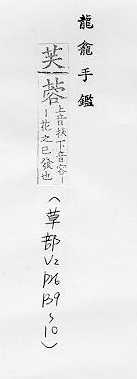 龍龕手鑑
芙蓉上音扶下音容｜
｜花之已發也
(草部V2
p26
B9
~10)